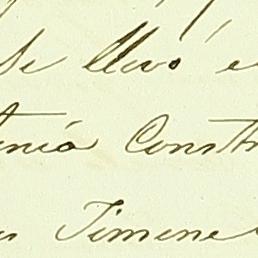 se llevó e
enia Constr
Jimene